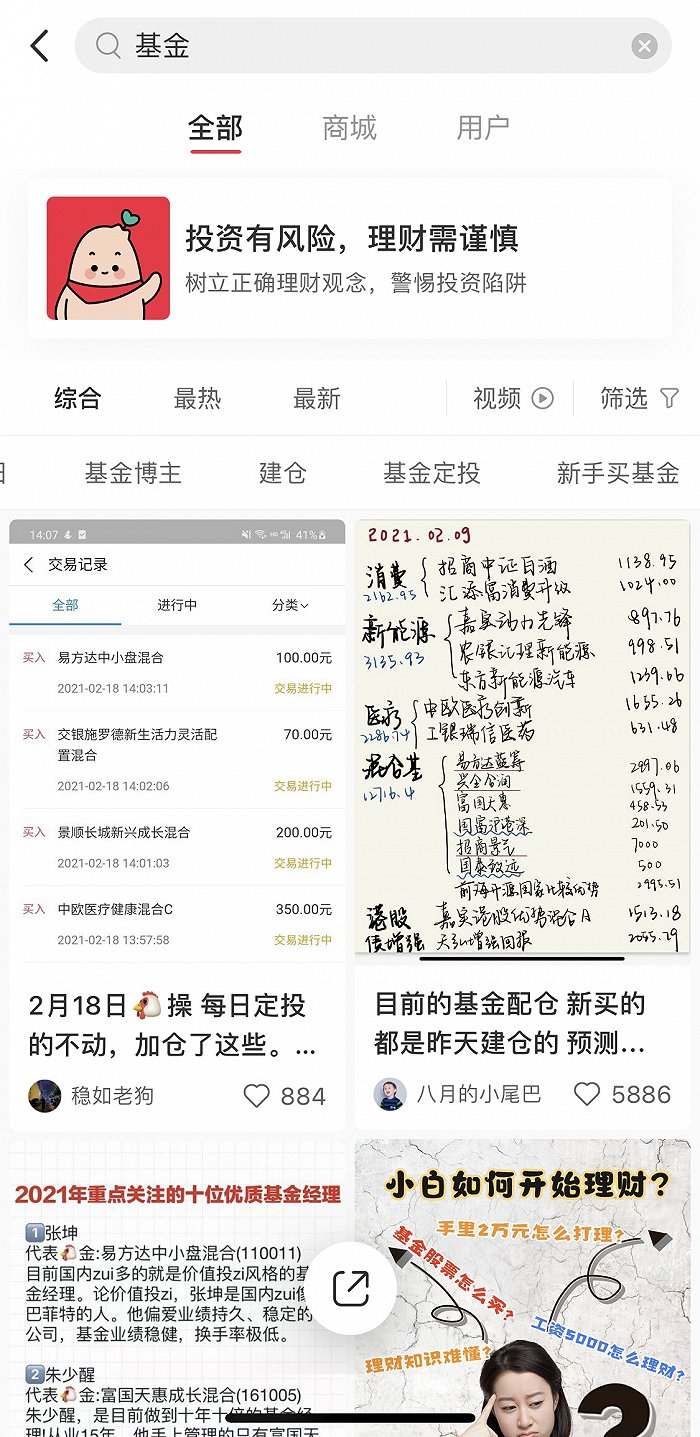 基金
全部
商城
用户
投资有风险，理财需谨慎
树立正确理财观念，警惕投资陷阱
综合
最热
最新
视频
筛选
基金博主
建仓
基金定投
新手买基金
14:07
41%
交易记录
全部
进行中
分类
买入 易方达中小盘混合 100.00元
2021-02-18 14:03:11 交易进行中
买入 交银施罗德新生活力灵活配 70.00元
置混合
2021-02-18 14:02:06 交易进行中
买入 景顺长城新兴成长混合 200.00元
2021-02-18 14:01:03 交易进行中
买入 中欧医疗健康混合C 350.00元
2021-02-18 13:57:58 交易进行中
2月18日🐔操 每日定投
的不动，加仓了这些。...
稳如老狗 884
2021.02.09
消费 招商中证白酒 1138.95
2162.95 汇添富消费升级 1024.00
新能源 嘉实动力先锋 897.76
3135.93 农银汇理新能源 998.51
东方新能源汽车 1239.66
医疗 中欧医疗创新 1655.26
2286.74 工银瑞信医药 631.48
混合基 易方达蓝筹 2997.06
12716.4 兴全合润 1559.31
富国天惠 458.53
国富沪港深 201.50
招商景气 7000
国泰致远 500
前海开源国家比较优势 2995.51
港股 嘉实港股优势混合A 1513.18
债增强 天弘增强回报 2055.29
目前的基金配仓 新买的
都是昨天建仓的 预测...
八月的小尾巴 5886
2021年重点关注的十位优质基金经理
1张坤
代表🐔金:易方达中小盘混合(110011)
目前国内zui多的就是价值投zi风格的基
金经理。论价值投zi，张坤是国内zui像
巴菲特的人。他偏爱业绩持久、稳定的
公司，基金业绩稳健，换手率极低。
2朱少醒
代表🐔金:富国天惠成长混合(161005)
朱少醒，是目前做到十年十倍的基金经
理!从业15年，他手上管理的只有富国天
小白如何开始理财？
手里2万元怎么打理？
基金股票怎么买？
工资5000怎么理财？
理财知识难懂？
?